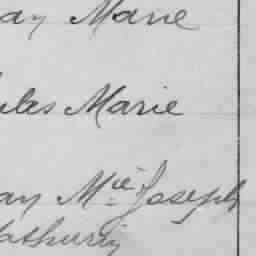 ay Marie
ules Marie
an Mie Joseph
athurin